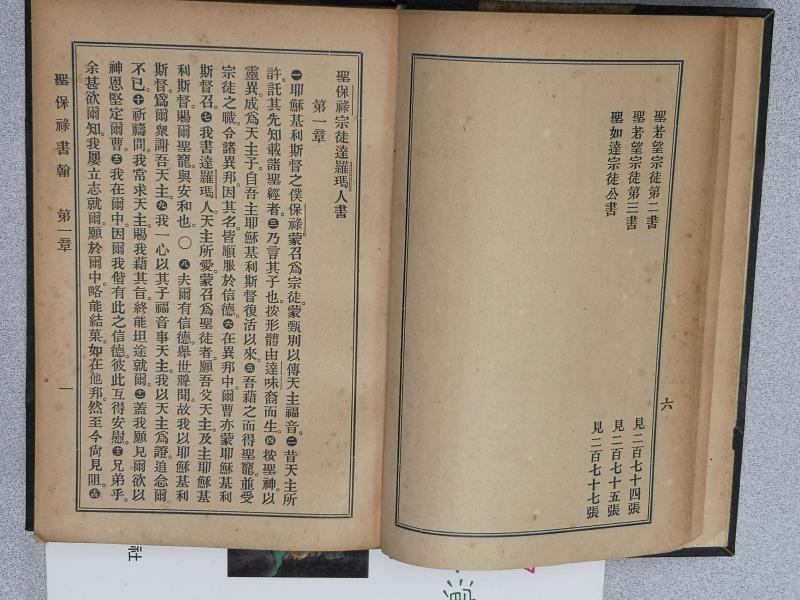 六
聖若望宗徒第二書 見二百七十四張
聖若望宗徒第三書 見二百七十五張
聖如達宗徒公書 見二百七十七張
聖保祿宗徒達羅瑪人書
第一章
㊀耶穌基利斯督之僕保祿蒙召爲宗徒蒙甄別以傳天主福音。㊁昔天主所
許託其先知載諸聖經者㊂乃言其子也。按形體由達味裔而生。㊃按聖神以
靈異成爲天主子。自吾主耶穌基利斯督復活以來。㊄吾藉之而得聖寵。並受
宗徒之職。令諸異邦因其名皆順服於信德。㊅在異邦中。爾曹亦蒙耶穌基利
斯督召。㊆我書達羅瑪人天主所愛。蒙召爲聖徒者。願吾父天主。及主耶穌基
利斯督賜爾聖寵與安和也。〇㊇夫爾有信德。舉世聲聞。故我以耶穌基利
斯督。爲爾衆謝吾天主。㊈我一心以其子福音事天主。我以天主爲證。追念爾
不已。㊉祈禱間。我當求天主賜我藉其旨。終能坦途就爾。蓋我願見爾。欲以
神恩堅定爾曹。我在爾中。因爾我偕有此之信德。彼此互得安慰。兄弟乎。
余甚欲爾知。我屢立志就爾。願於爾中。略能結菓。如在他邦。然至今尙見阻。
聖保祿書翰 第一章 一
社